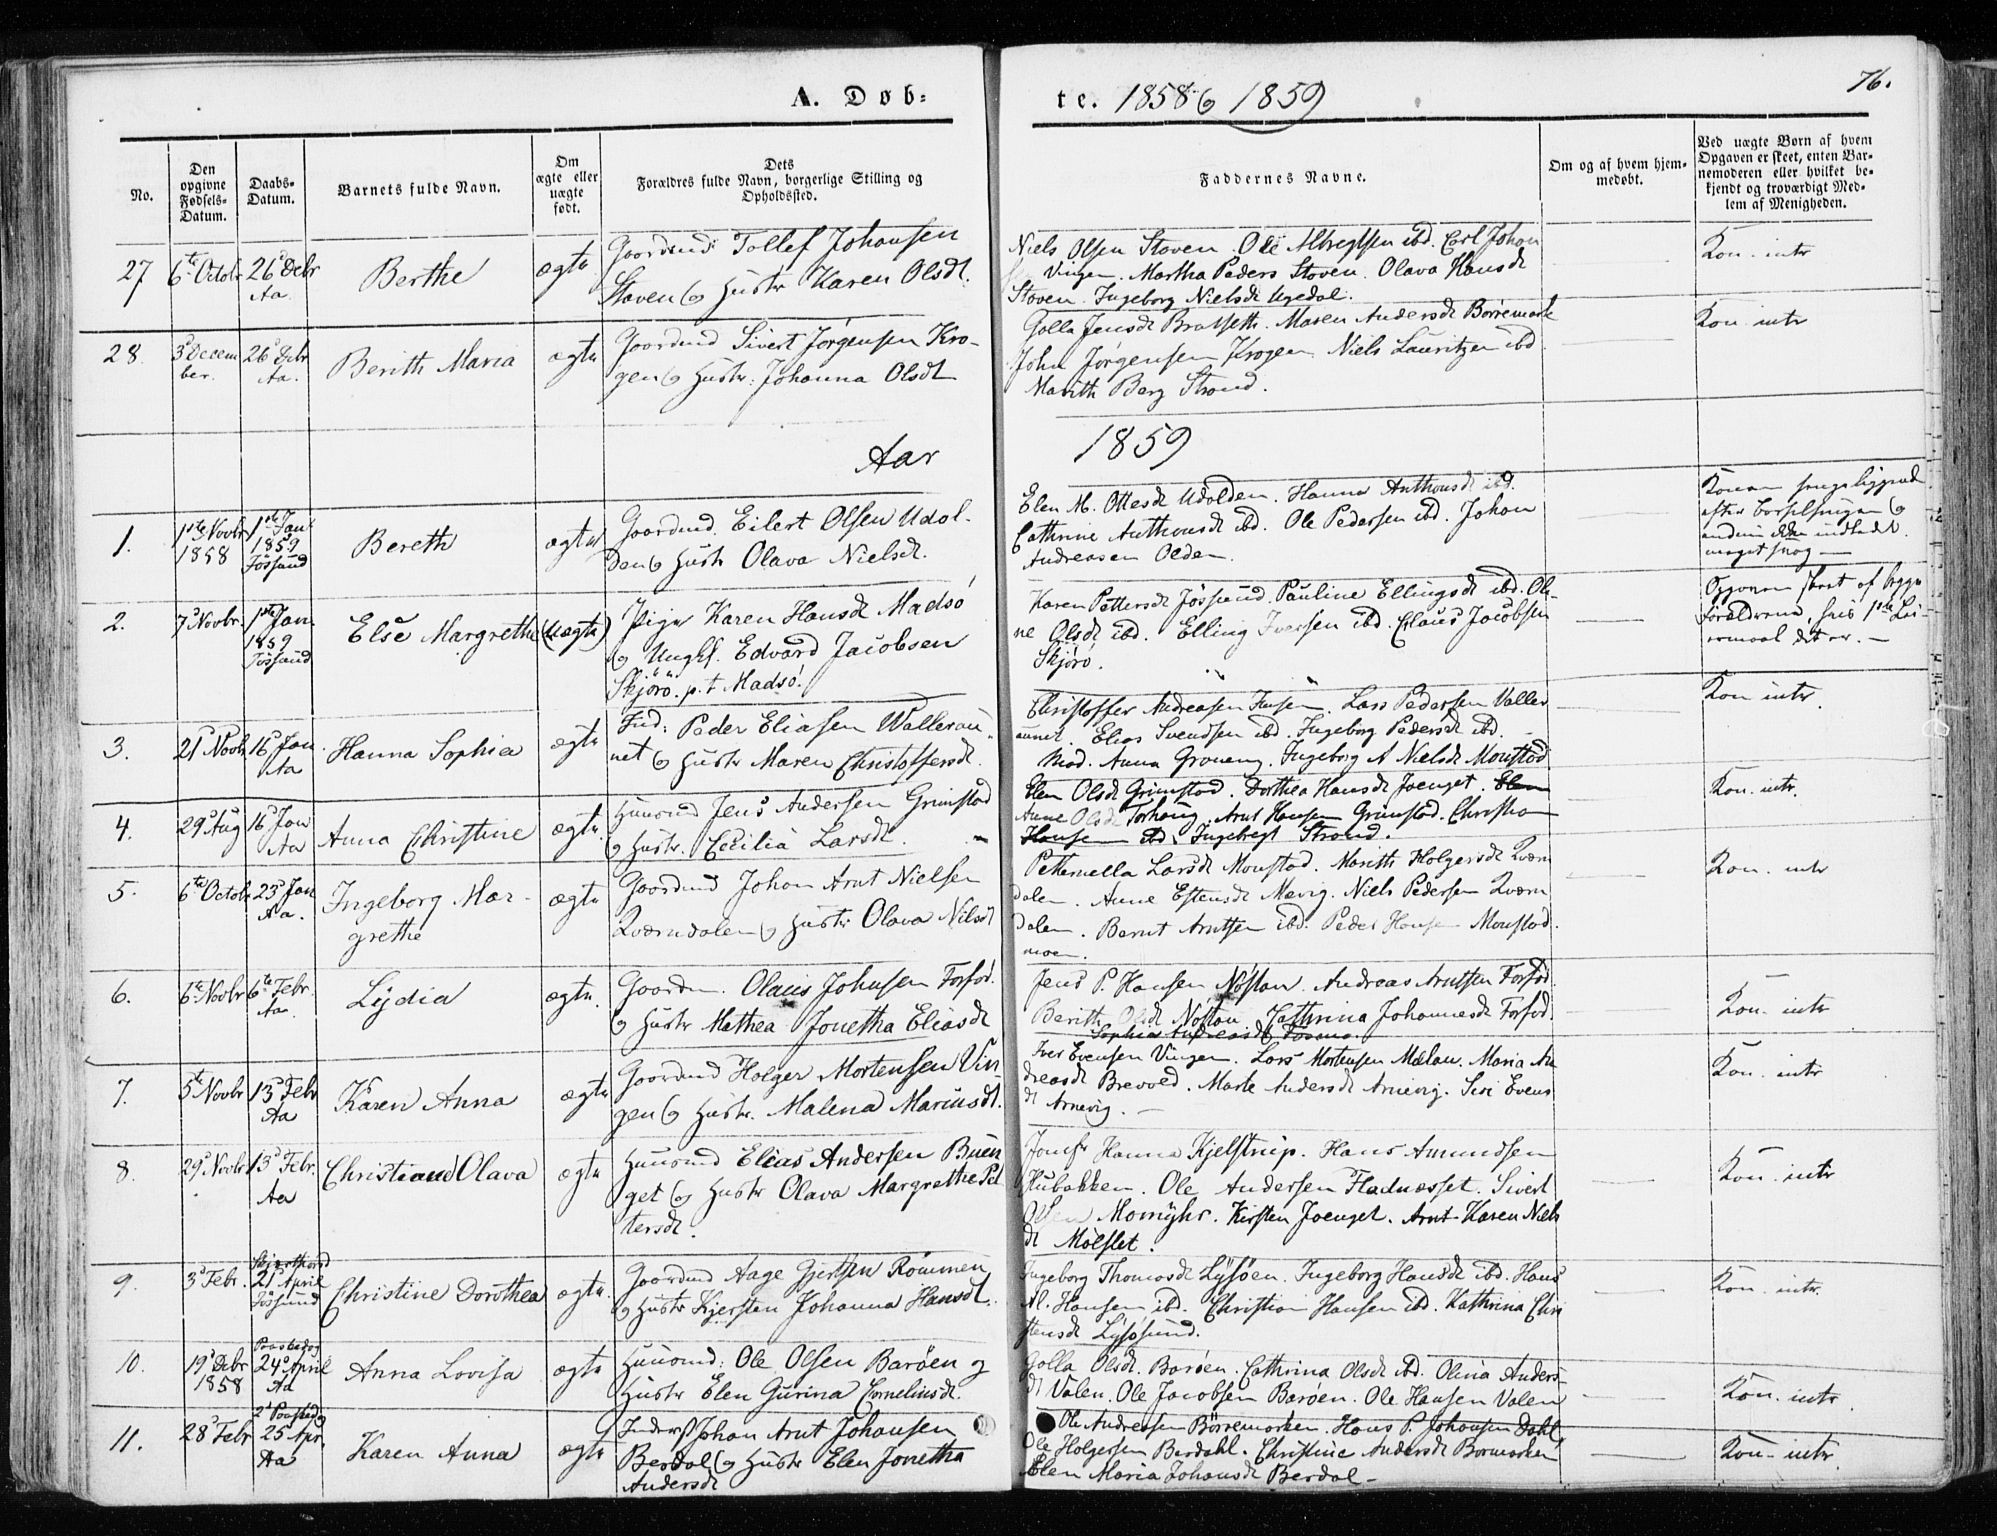 76.
A. Døb=
te. 1858 og 1859
No.
Den opgivne Fødsels-Datum.
Daabs-Datum.
Barnets fulde Navn.
Om ægte eller uægte født.
Dets Forældres fulde Navn, borgerlige Stilling og Opholdssted.
Faddernes Navne.
Om og af hvem hjemmedøbt.
Ved uægte Børn af hvem Opgaven er skeet, enten Barnemoderen eller hvilket bekjendt og troværdigt Medlem af Menigheden.
27 6te Octobr 26d Debr Aa. Berthe ægte
Gaardmd: Tollef Johansen
Staven og Hustr Karen Olsdt.
Niels Olsen Stoven. Ole Albregtsen ibd. Carl Johan
Vingen. Martha Peders Stoven. Olava Hansdt
Stoven. Ingeborg Nielsdt Ugedal.
Kon. intr
28. 3d December. 26d Debr Aa. Berith Maria ægte
Gaardmd Sivert Jørgensen Kro-
gen og Hustr: Johanna Olsdt
Golla Jensdt Bratseth. Maren Andersdt Børremark
John Jørgensen Krogen. Niels Lauritzen ibd
Marith Berg Strand.
Kon. intr
Aar 1859
1. 1ste Novbr 1858 1ste Jan 1859 Jössund Bereth ægte
Gaardmd. Eilert Olsen Udol-
den og Hustr Olava Nielsdt.
Elen M. Ottesdt Udolden. Hanna Anthonsdt ibd.
Cathrine Anthonsdt ibd. Ole Pedersen ibd. Johan
Andreasen Olden.
2. 7d Novbr. 1ste Jan 1859 Jössund Else Margrethe (uægte)
Pige Karen Hansdt Madsö
og Ungk. Edvard Jacobsen
Skjörö. p. t Madsö.
Karen Pettersdt Jössund. Pauline Ellingsdt ibd. Ole-
ne Olsdt ibd. Elling Iversen ibd. Claus Jacobsen
Skjörö.
3. 21d Novbr 16d Jan Aa Hanna Sophia ægte
Ind: Peder Eliasen Wallerau-
net og Hustr Maren Christoffersdt.
Christoffer Andreasen. Lars Pedersen Valler
aunet. Elias Svendsen ibd. Ingeborg Pedersdt ibd.
Mad. Anna Groneng. Ingeborg A Nielsdt Monstad
Kon intr
4. 29d Aug 16d Jan Aa Anna Christine ægte.
Huusmd Jens Andersen Grimstad
og Hustr. Cecilia Larsdt.
Elen Olsdt Grimstad. Dorthea Hansdt Joenget. Elen
Anne Olsdt Torhaug. Arnt Hansen Grimstad. Christian
Hansen ibd. Ingebregt Strand.
Kon. intr.
5. 6te Octobr 23d Jan Aa. Ingeborg Mar-
grethe ægte
Gaardmd Johan Arnt Nielsen
Qværndalen og Hustr Olava Nilsdt
Petternella Larsdt Monstad. Marith Holgersdt Qværn
dalen. Anne Estensdt Mevig. Niels Pedersen Qværn
dalen. Bernt Arntsen ibd. Peder Hansen Monstad-
moen.
Kon. intr
6. 6te Novbr 6te Febr. Aa. Lydia ægte.
Gaardm. Olaus Johnsen Forfod.
og Hustr Mathea Jonetha Eliasdt
Jens P. Hansen Nöstan. Andreas Arntsen Forfod.
Berith Olsdt Nöstan. Cathrina Johannesdt Forfod.
Sophia Andreasdt
Kon. intr
7. 5te Novbr 13d Febr Aa Karen Anna ægte
Gaardmd Holger Mortensen Vin-
gen og Hustr. Malena Mariusdt.
Iver Evensen Vingen. Lars Mortensen Mælan. Maria An
dreasdt Brevold. Marte Andersdt Arnevig. Siri Evens
dt Arnevig.
Kon. intr
8. 29d Novbr 13d Febr. Aa Christiane Olava ægte
Huusmd Elias Andersen Buen
get og Hustr Olava Margrethe Pet
tersdt.
Jomfr Hanna Kjelstrup. Hans Amundsen
Hubakken. Ole Andersen Fladnæsset. Sivert
Olsen Momyhr. Kirsten Joenget. Arnt Karen Niels
dt Mölslet.
Kon. intr
9. 3d Febr. Skjærthorsd 21d April Jössund Christine Dorothea ægte.
Gaardmd Aage Gjertsen Römmen
og Hustr Kjersten Johanna Hansdt.
Ingeborg Thomasdt Lysöen. Ingeborg Hansdt ibd. Hans
M. Hansen ibd. Christian Hansen ibd. Kathrina Chri
stensdt Lysösund.
Kon. intr.
10. 19d Debr 1858 Paaskedag 24d April Aa Anna Lovisa ægte
Huusmd: Ole Olsen Baröen og
Hustr Elen Gurina Corneliusdt.
Golla Olsdt. Baröen. Cathrina Olsdt ibd. Olina Anders
dt Valen. Ole Jacobsen Baröen. Ole Hansen Valen
Kon. intr.
11. 28d Febr 2d Paaskedag 25 Apr. Aa Karen Anna ægte
Inderst Johan Arnt Johansen
Berdal og Hustr Elen Jonetha
Andersdt
Ole Andreasen Börremarken. Hans P. Johansen Dahl,
Ole Holgersen Berdahl. Christine Andersdt Bormarken
Elen Maria Johansdt Berdal-
Kon. intr.